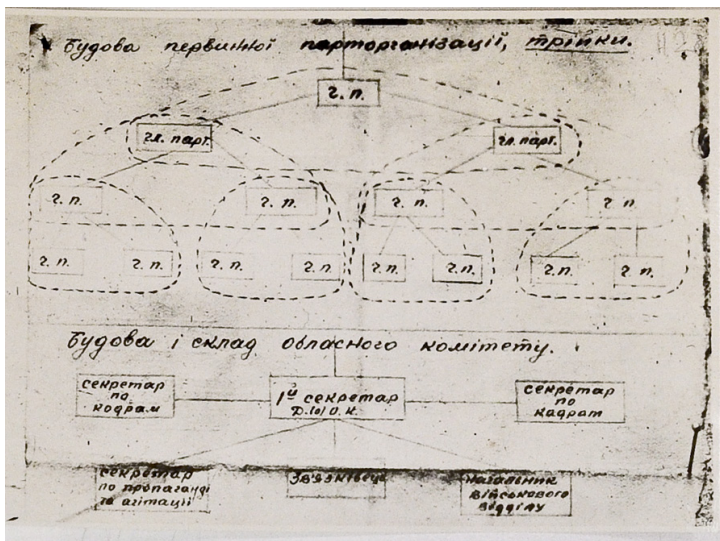 Будова первинної парторганізації, трійки.
г. п.
гл. парт.
гл. парт.
г. п.
г. п.
г. п.
г. п.
г. п.
г. п.
г. п.
г. п.
г. п.
г. п.
г. п.
г. п.
Будова і склад обласного комітету.
секретар
по
кадрам
1й секретар
О. К.
секретар
по
кадрам
секретар
по пропаганді
та агітації
Зв'язківець
начальник
військового
відділу